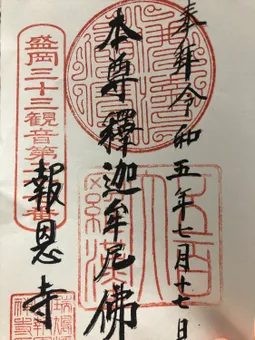 奉拜令和五年七月十七日
本尊釋迦牟尼佛
盛岡三十三観音第
番
報恩寺
五百
羅漢